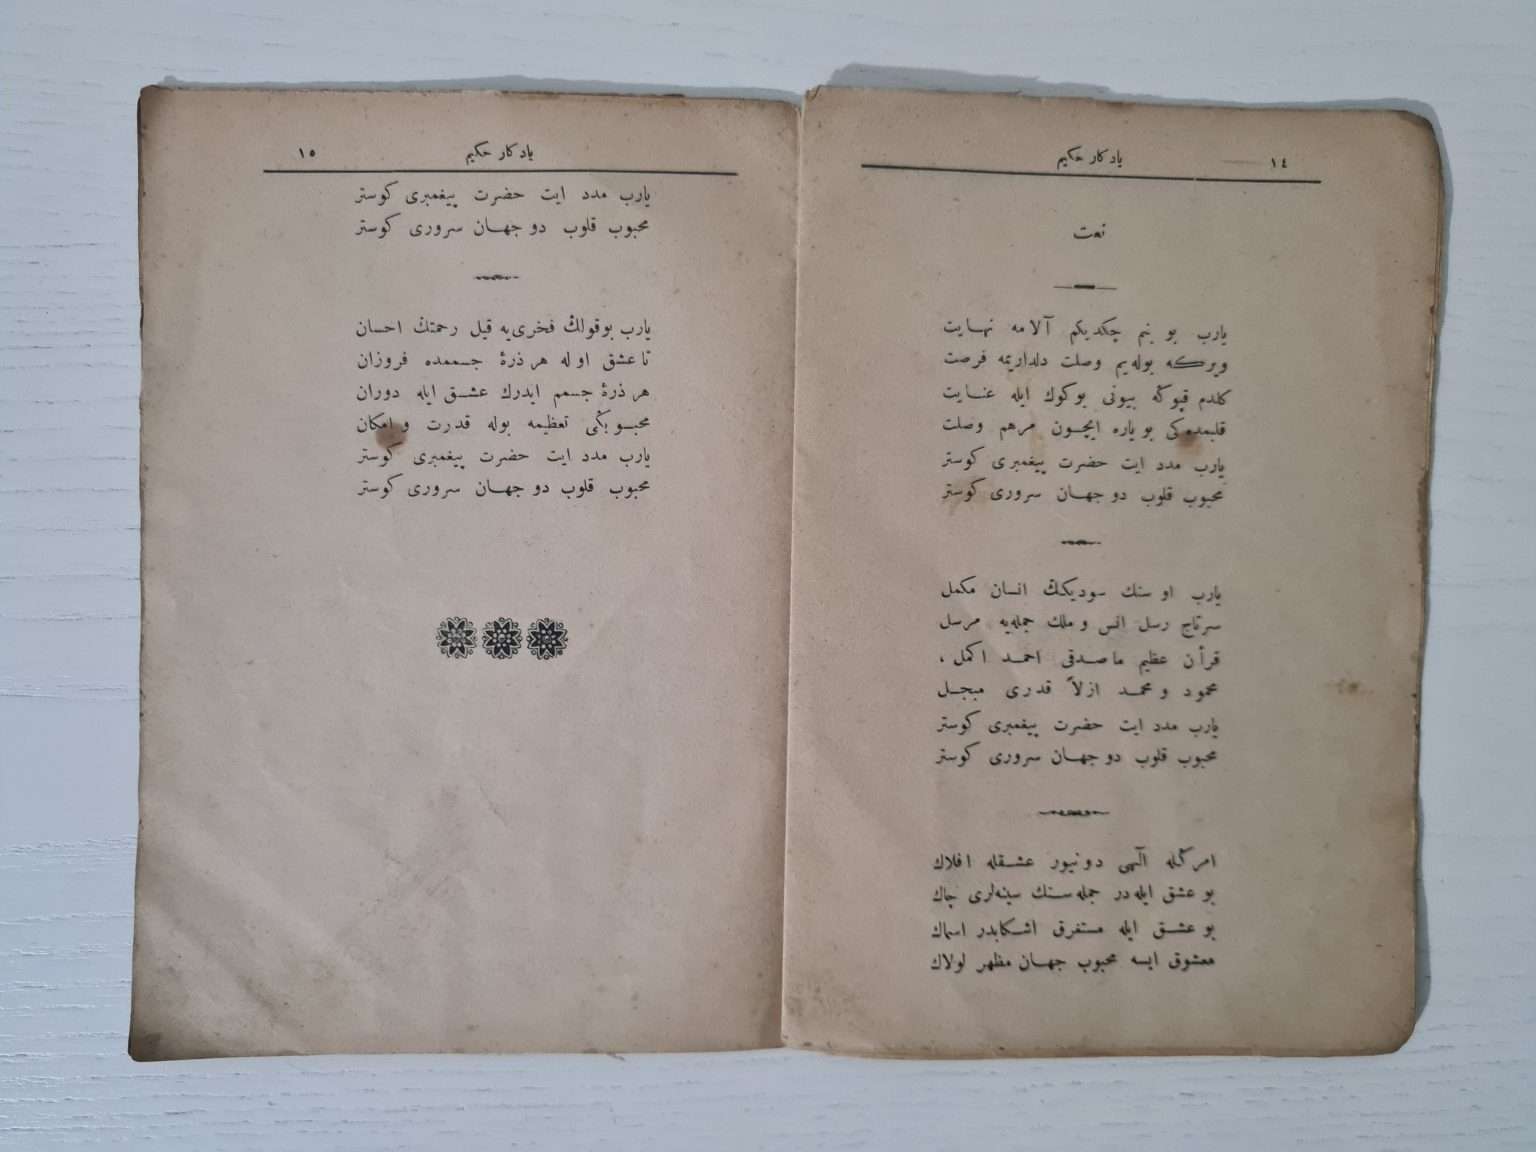 ١٤
یادکار حکیم
نعت
یارب بو بنم چکدیکم آلامه نهایت
ویرکه بوله‌یم وصلت دلداریمه فرصت
کلدم قپوڭه بیونی بوکوك ایله عنایت
قلبمده‌کی بو یاره ایچون مرهم وصلت
یارب مدد ایت حضرت پیغمبری کوستر
محبوب قلوب دو جهان سروری کوستر
یارب او سنك سودیكڭ انسان مکمل
سرتاج رسل انس و ملك جمله‌یه مرسل
قرأن عظیم ماصدقی احمد اکمل ،
محمود و محمد ازلاً قدری مبجل
یارب مدد ایت حضرت پیغمبری کوستر
محبوب قلوب دو جهان سروری کوستر
امرڭله الهی دونیور عشقله افلاك
بو عشق ایله در جمله‌سنك سینه‌لری چاك
بو عشق ایله مستغرق اشکابدر اسماك
معشوق ایسه محبوب جهان مظهر لولاك
١٥
یادکار حکیم
یارب مدد ایت حضرت پیغمبری کوستر
محبوب قلوب دو جهان سروری کوستر
یارب بوقولڭ فخری‌یه قیل رحمتڭ احسان
تا عشق اوله هر ذرۀ جسممده فروزان
هر ذرۀ جسمم ایدرك عشق ایله دوران
محبوبڭی تعظیمه بوله قدرت و امکان
یارب مدد ایت حضرت پیغمبری کوستر
محبوب قلوب دو جهان سروری کوستر